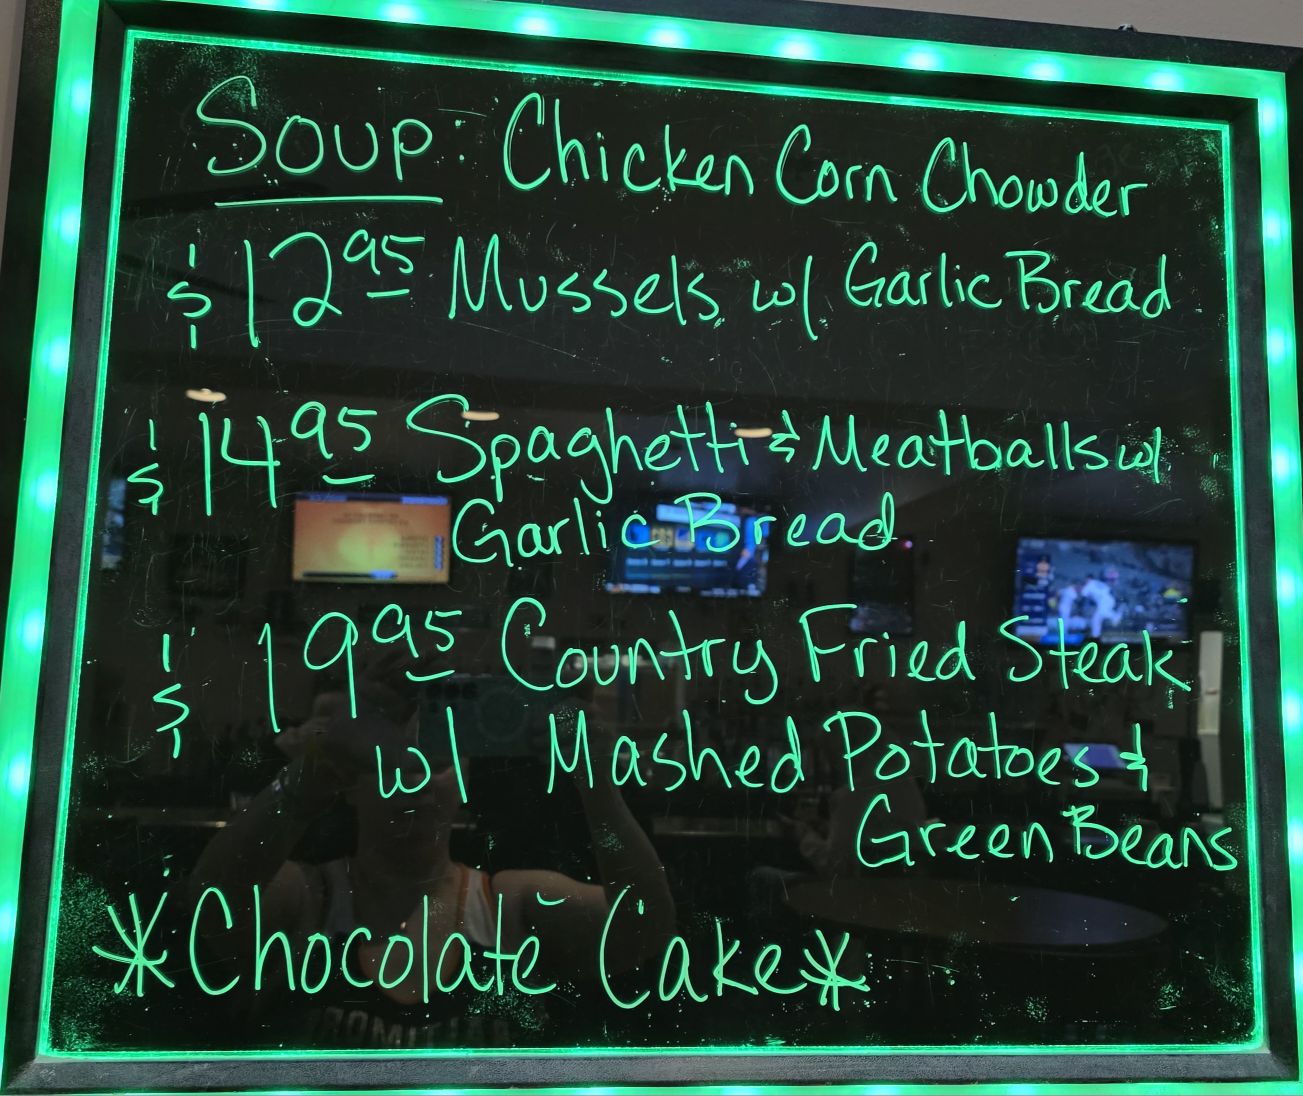 Soup: Chicken Corn Chowder
$12.95 Mussels w/ Garlic Bread
$14.95 Spaghetti & Meatballs w/
Garlic Bread
$19.95 Country Fried Steak
w/ Mashed Potatoes &
Green Beans
*Chocolate Cake*